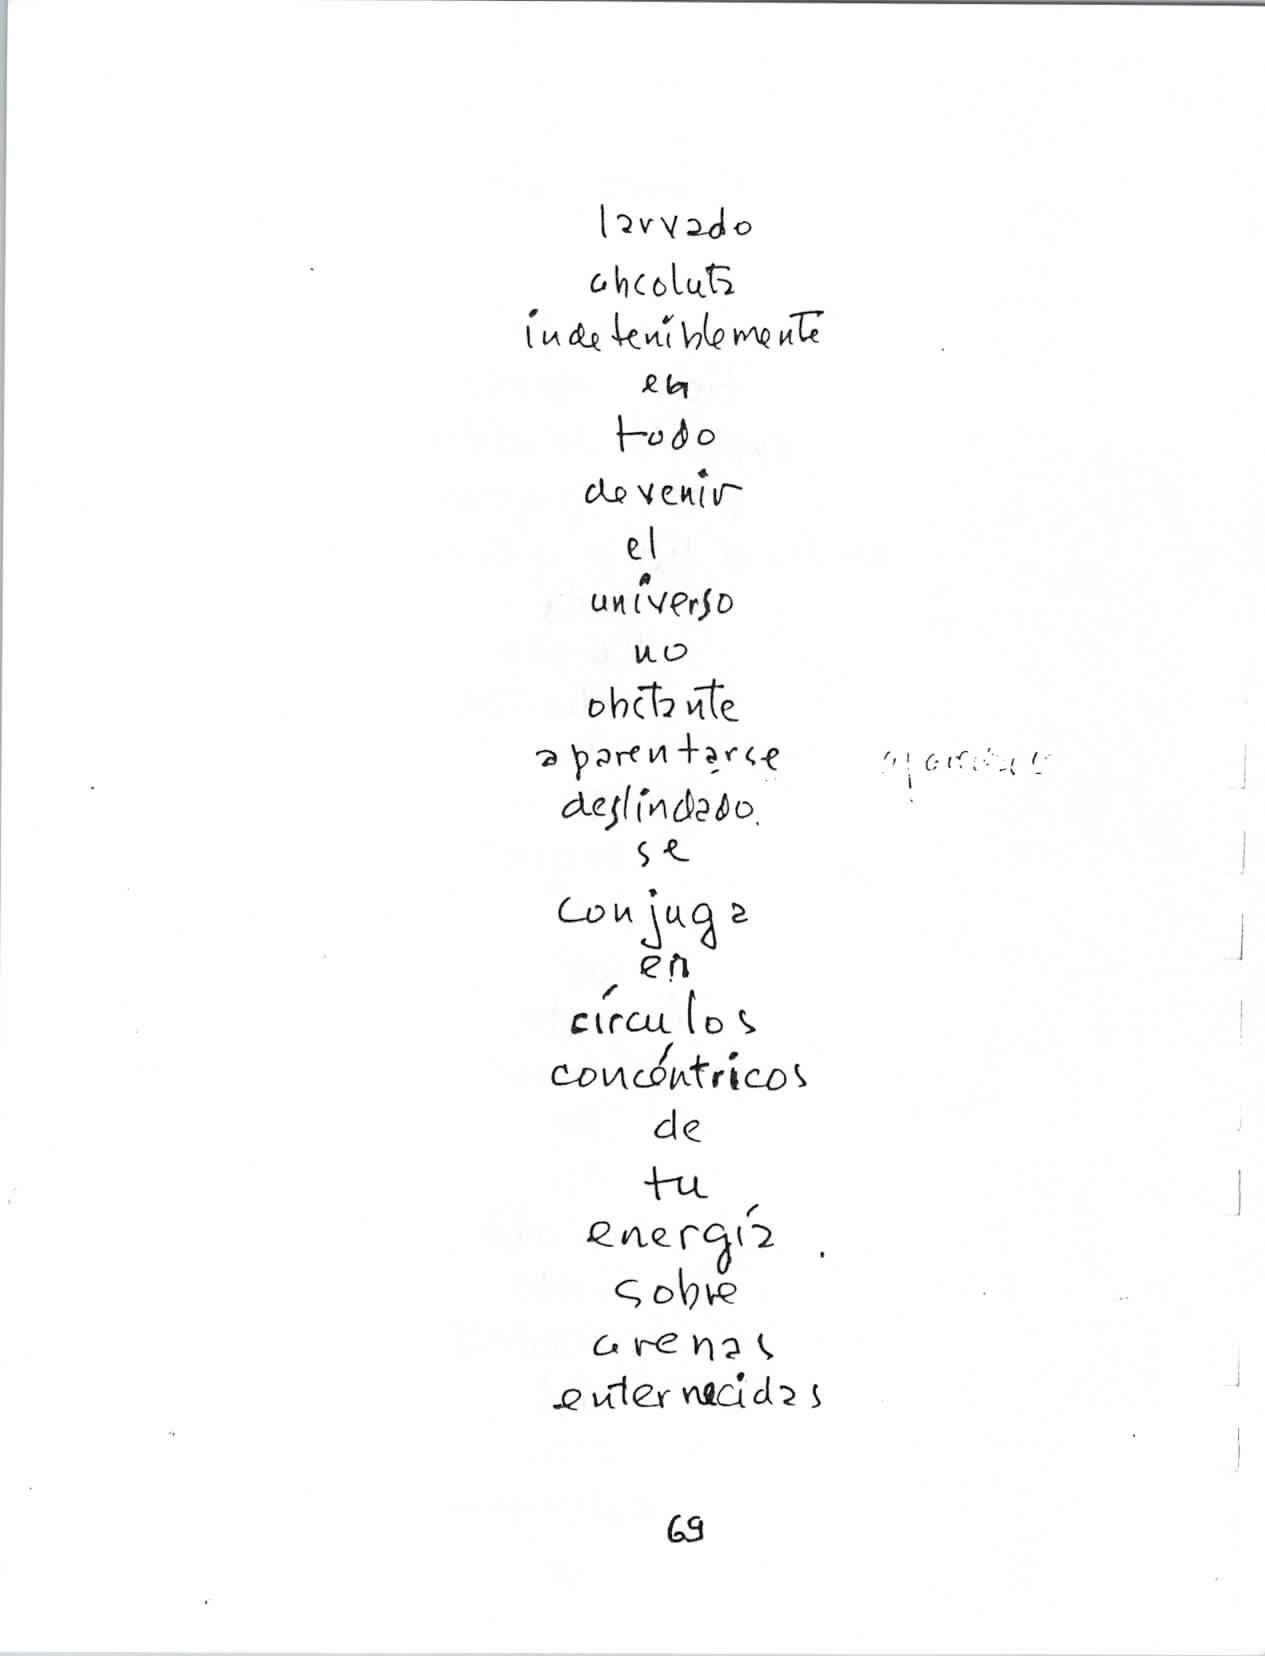 larvado
absoluta
indeteniblemente
en
todo
devenir
el
universo
no
obstante
aparentarse
deslindado
se
conjuga
en
círculos
concéntricos
de
tu
energía
sobre
arenas
enternecidas
69